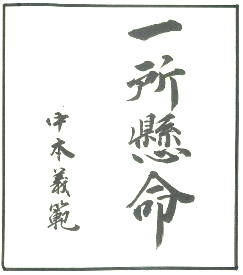 一所懸命
中本義範